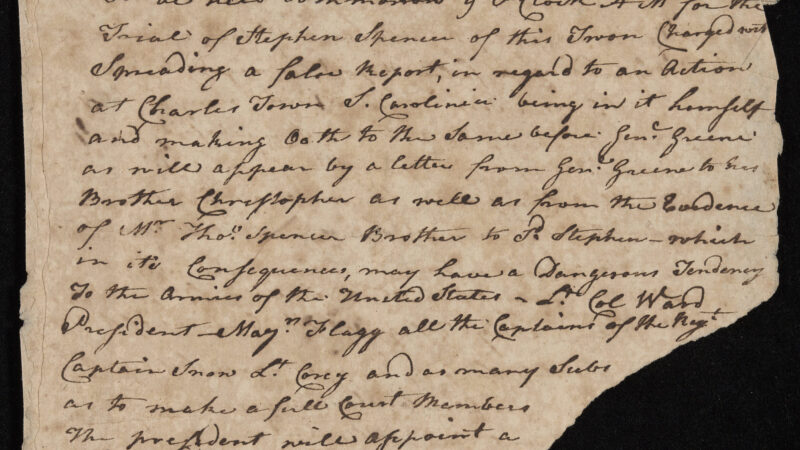 be held tommorrow 9 O'Clock A M for the
Trial of Stephen Spencer of this Town Charged with
Spreading a false Report, in regard to an Action
at Charles Town S. Carolinia being in it himself
and making Oath to the Same before Genl. Greene
as will appear by a letter from Genl. Greene to his
Brother Christopher as well as from the Evedence
of Mr. Thos. Spencer Brother to Sd. Stephen - which
in it's Consequences, may have a Dangerous Tendency
To the Armies of the United States - Lt. Col Ward
President - Flagg all the Captains of the Regt.
Captain Snow Lt. Corey and as many Subs
as to make a full Court Members
The president will appoint a